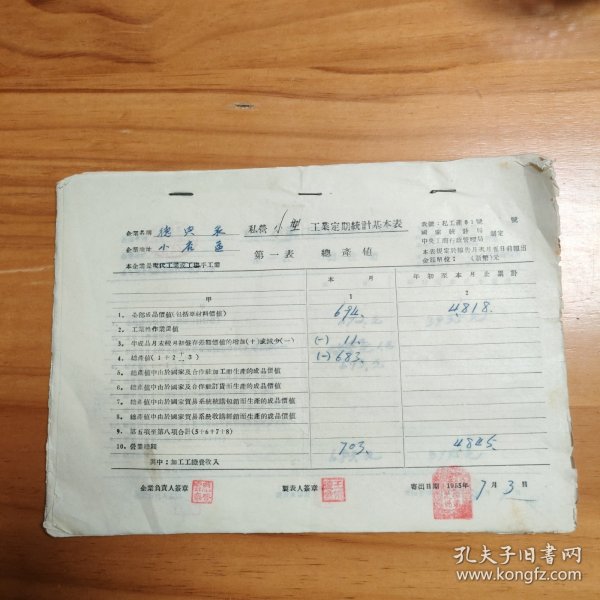 企業名稱 德興永 私營小型工業定期統計基本表 表號：私工產01號 號
國家統計局
中央工商行政管理局 制定
企業地址
第一表 總產值
金額單位：(新幣)元
本月 年初至本月止累計
甲 1 2
1. 全部成品價值(包括原材料價值) 694. 4818.
2. 工業性作業價值
3. (一) 11.
4. 總產值(1+2±3) (一) 683.
5. 總產值中由於國家及合作社加工而生產的成品價值
6. 總產值中由於國家及合作社訂貨而生產的成品價值
7. 總產值中由於國家貿易系統統購包銷而生產的成品價值
8. 總產值中由於國家貿易系統收購經銷而生產的成品價值
9. 第五項至第八項合計(5+6+7+8)
10. 營業總額 703. 4845.
其中：加工工繳費收入
企業負責人簽章 製表人簽章 寄出日期：1955年 7月 3日
孔夫子旧书网
www.kongfz.com